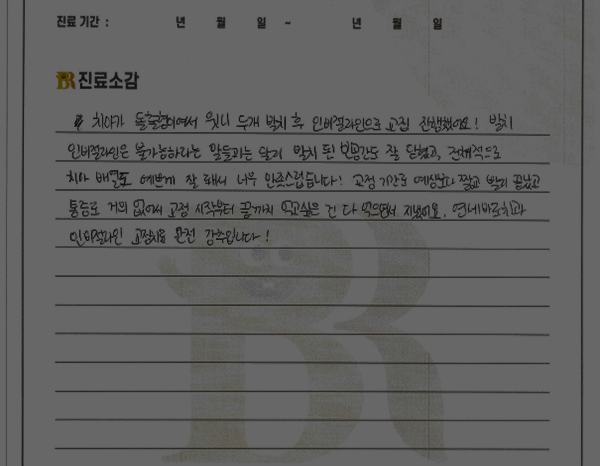 진료 기간 : 년 월 일 ~ 년 월 일
BR 진료소감
치아가 돌출형이여서 윗니 두개 발치 후 인비절라인으로 교정 진행했어요! 발치
인비절라인은 불가능하다는 말들과는 달리 발치 된 빈공간도 잘 닫혔고, 전체적으로
치아 배열도 예쁘게 잘 돼서 너무 만족스럽습니다! 교정 기간도 예상보다 짧고 빨리 끝났고
통증도 거의 없어서 교정 시작부터 끝까지 먹고싶은 건 다 먹으면서 지냈어요. 연세바로치과
인비절라인 교정치료 완전 강추입니다!
BR